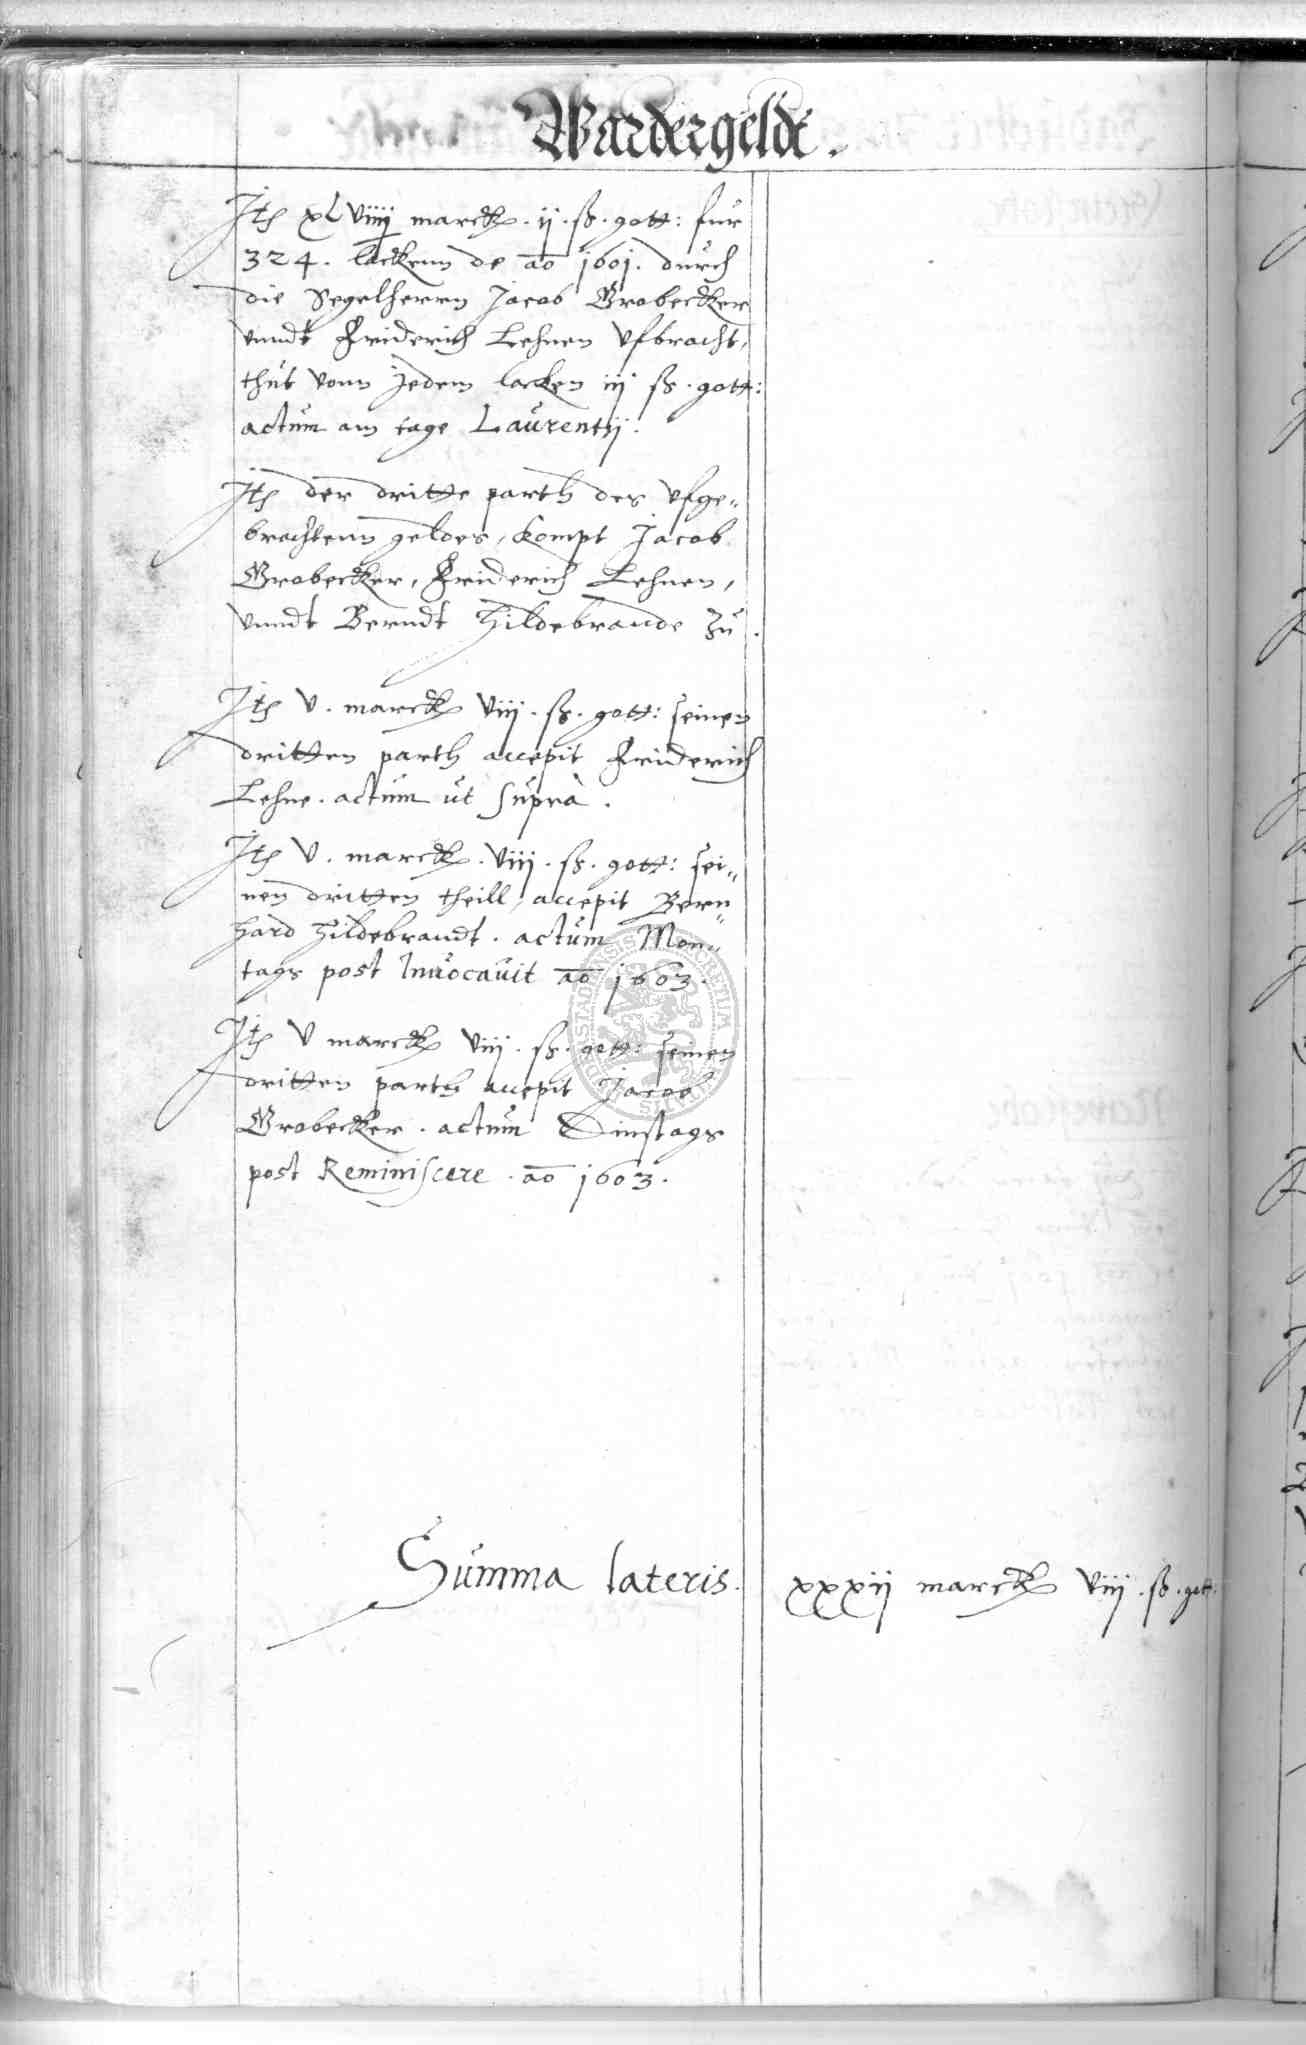 Wardergeldt.
Jtem xLviiij marck. ij. ß. gott: fur
324. lackenn de ao 1601. durch
die Segelherrn Jacob Grobecker
vnndt Friderich Lehnen vfbracht,
thut vonn Jedem lacken iij ß. gott:
actum am tage Laurentij.
Jtem der dritte parth des vfge„
brachtenn geldes, kompt Jacob
Grobecker, Friderich Lehnen,
vnndt Berndt Hildebrande zu.
Jtem v. marck viij. ß. gott: seinen
dritten parth accepit Friderich
Lehne. actum ut suprà.
Jtem v. marck. viij. ß. gott: sei„
nen dritten theill, accepit Bern„
hard Hildebrandt. actum Mon„
tags post Inuocauit ao 1603.
Jtem v marck viij. ß. gott: seinen
dritten parth accepit Jacob
Grobecker. actum Dinstags
post Reminiscere. ao 1603.
Summa lateris. xxxij marck viij. ß. gott: